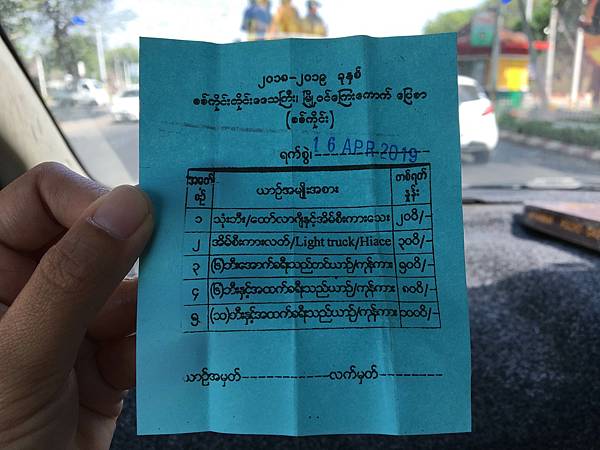 ၂၀၁၈-၂၀၁၉ ခုနှစ်
စစ်ကိုင်းတိုင်းဒေသကြီး၊ မြို့ဝင်ကြေးကောက် ပြေစာ
(စစ်ကိုင်း)
ရက်စွဲ၊ 16 APR 2019
အမှတ်စဉ် ယာဉ်အမျိုးအစား တစ်ရတ်နှုန်း
၁ သုံးဘီး/ထော်လာဂျီနှင့်အိမ်စီးကားသေး ၂၀၀ိ/-
၂ အိမ်စီးကားလတ်/Light truck/Hiace ၃၀၀ိ/-
၃ (၆)ဘီးအောက်ခရီးသည်တင်ယာဉ်/ကုန်ကား ၅၀၀ိ/-
၄ (၆)ဘီးနှင့်အထက်ခရီးသည်ယာဉ်/ကုန်ကား ၈၀၀ိ/-
၅ (၁၀)ဘီးနှင့်အထက်ခရီးသည်ယာဉ်/ကုန်ကား ၁၀၀၀ိ/-
ယာဉ်အမှတ်------------လက်မှတ်---------